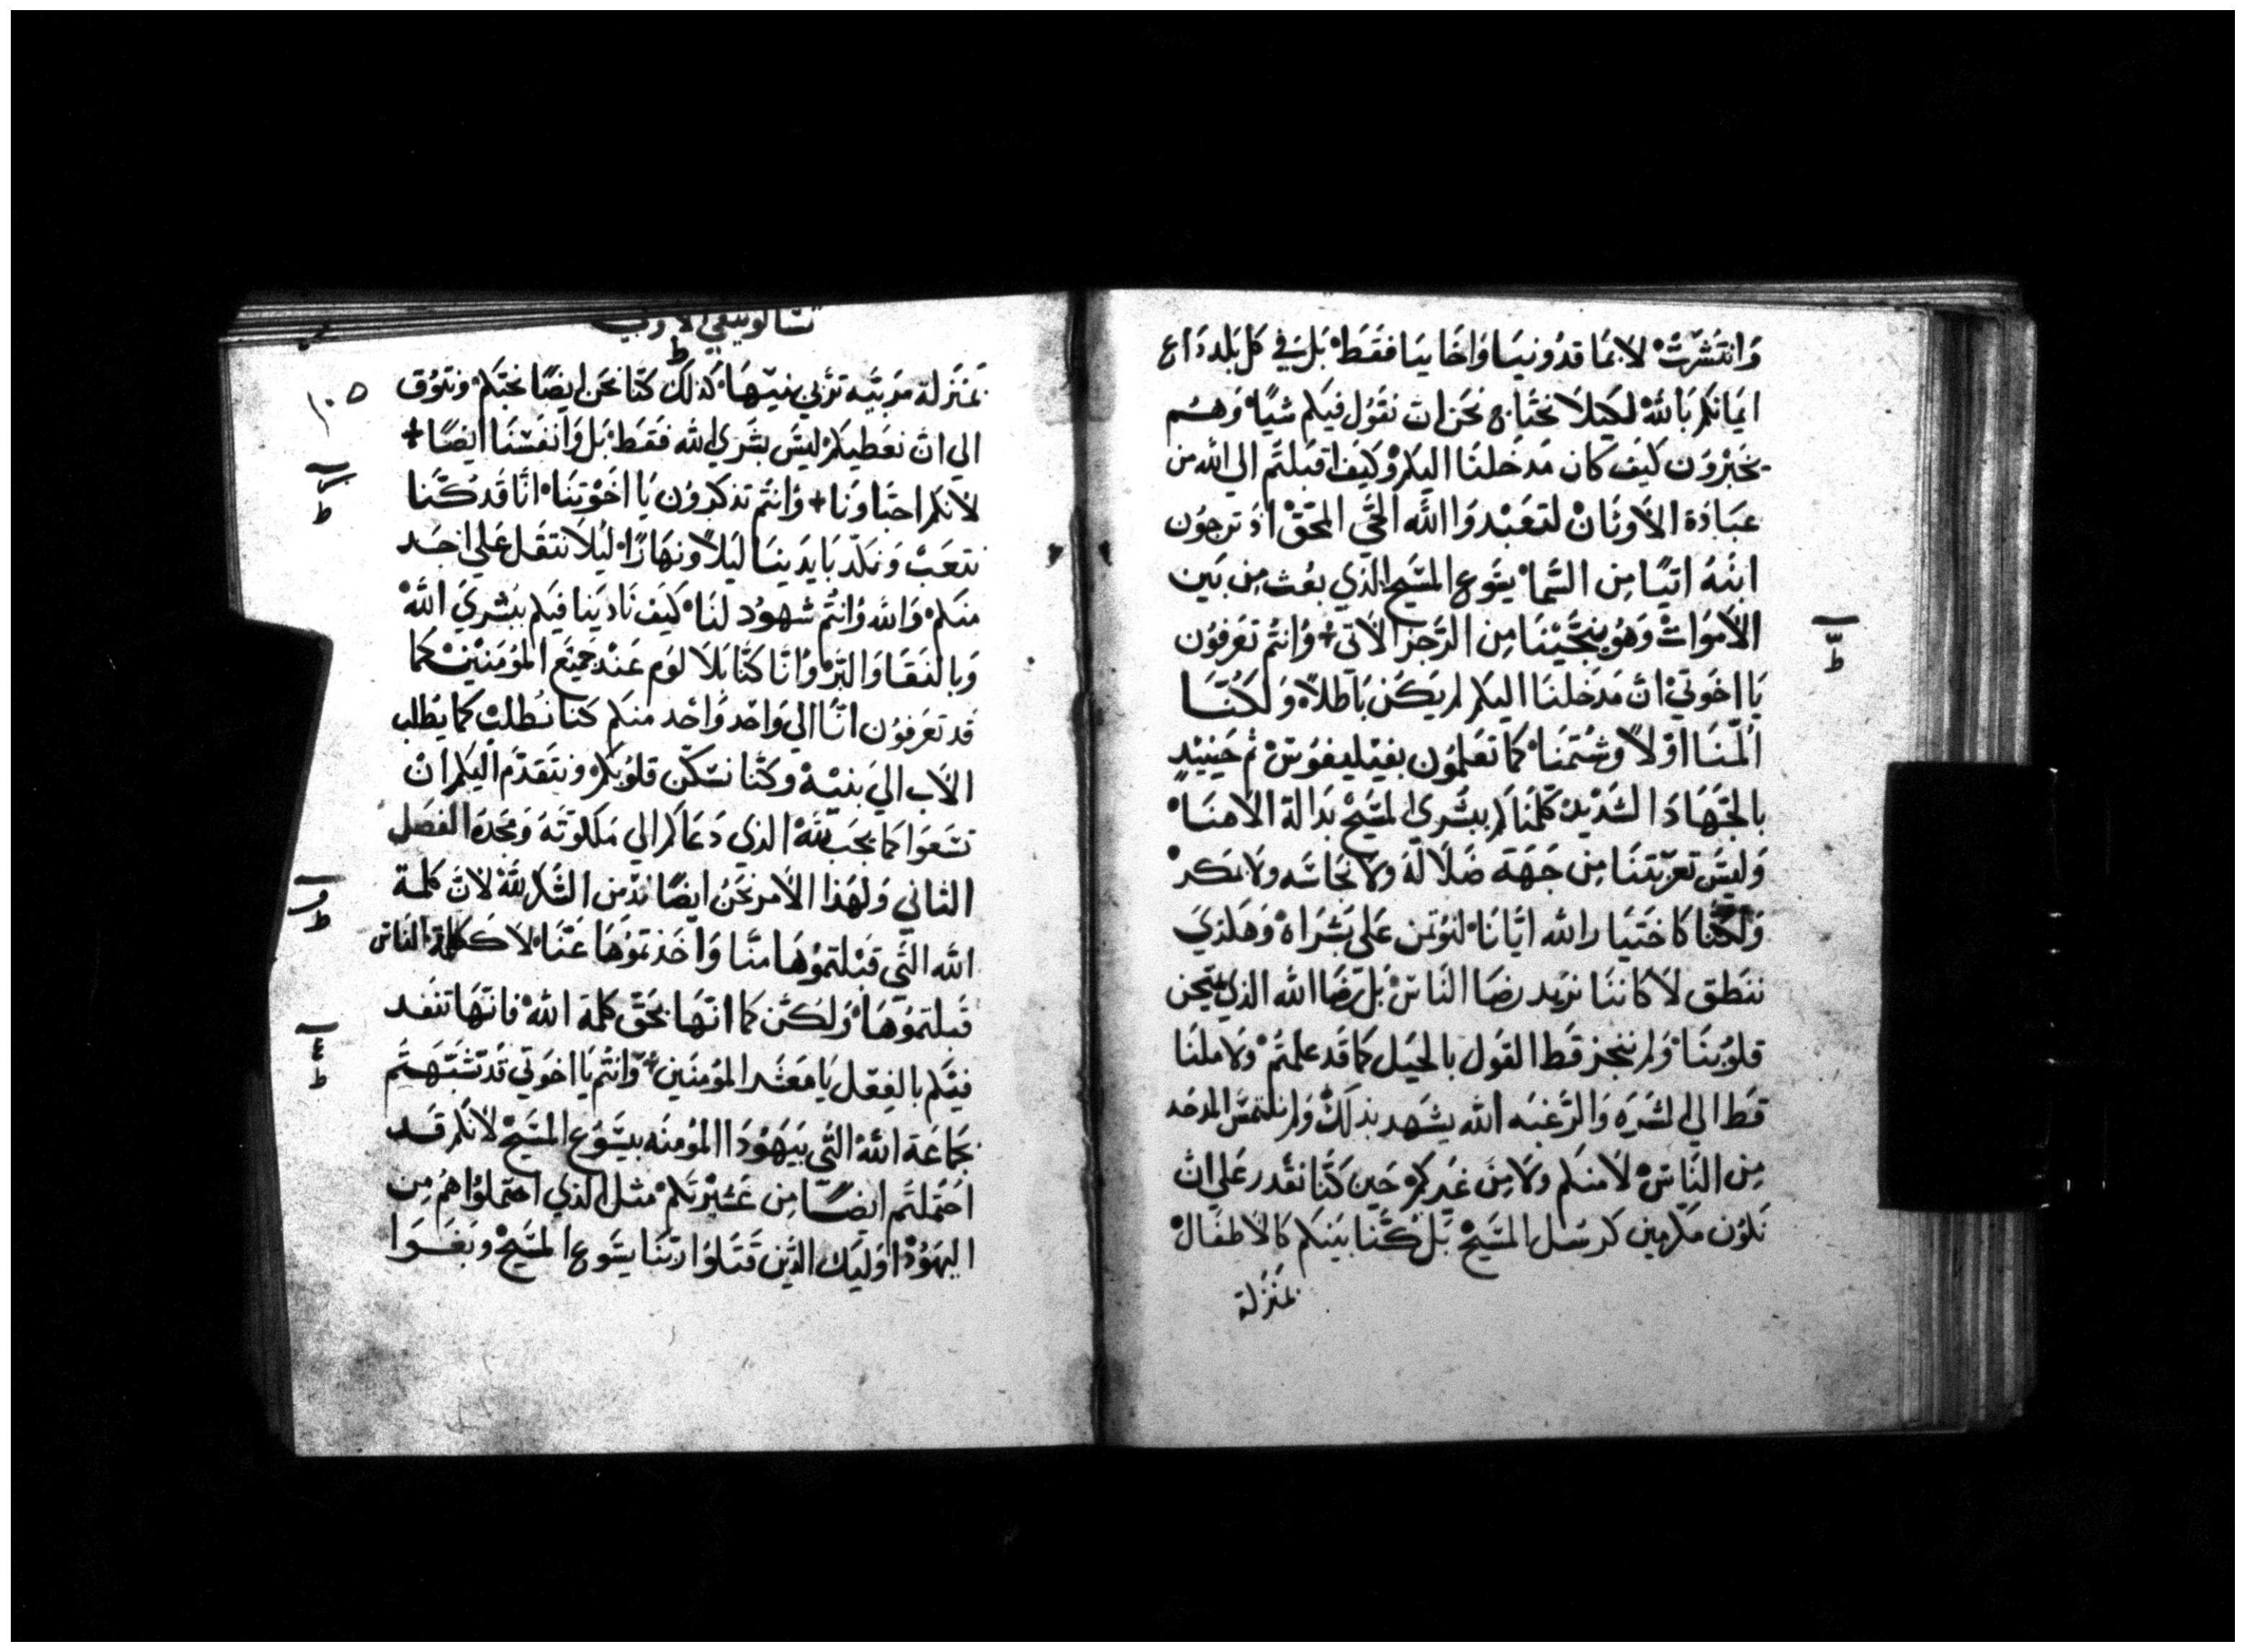 وَانتَشَرَتْ لا بمَا قدُونيَا وَاخَاييَا فقَط بَل وَفي كل بَلد ذَاع
ايمَانكم بَاللهْ لكَيلا نحتَاج نحَن ان نقوُل فيكم شيًا وَهُم
يخبَروُن كيَف كان مَدخَلنَا اليكم وكيَف اقبَلتَم الي الله من
عبَادَة الاَوثَانْ لتعَبْدوَا الله الحَي المحَقْ اذ ترجوُن
ابنَهُ اتيًا مِن السَمَا يسَوع المسَيح الذي بعُث مِن بَين
الاَموَاتْ وَهوُ ينجَيْنَا مِن الرَجز الاَتي + وَانتُم تعَرفوُن
يَا اخوَتيْ ان مَدخَلنَا اليكم لم يكَن بَاطلاً وَلكنَا
اُلمنَا اوَلاً وشُتمنَا كمَا تعَلموُن بفيَليفوُسْ ثم حَينيْدٍ
بالجَهَاد الشدَيْد كلمنَاكم ببشَري المسَيح بدَالة الاهنَا
وَليسَ تعَزيتنَا مِن جَهَة ضَلالة ولا نجَاسَه ولا بمَكر
وَلكنَا كاختيَار الله ايَانَا لنوُتمن عَلي بشَرَاهْ وَهَكذيَ
ننَطق لاَ كاننَا نريَد رضَا النَاسْ بَل رَضَا الله الذي يمتحن
قلوُبنَا وَلم ننجز قَط القوَل بالحيَل كما قَد علمتَم ولا ملنَا
قَط الي الشرَه وَالرَغبَه الله يشَهد بذلكْ وَلم نلتمسَ المدحَه
مِن النَاسْ لاَ منكم ولا مِنَ غيَركم حَين كنَا نقَدر عَلي ان
نكوُن مكرمين كرسُل المسَيحْ بَل كنَا بَينكم كالاَطفَالْ
بمَنزَلة
تسَالونيقي الاولي
١٠٥
بمَنزَلة مَربيَه ترَبي بنيْهَا كذلكْ كنَا نحَن ايضًا نحبَكم ونتوُق
الي ان نعَطيكم ليسَ بشَري الله فقَط بَل وَانفسْنَا ايضًا +
لاَنكم احبَاونَا + وَانتُم تذكروُن يَا اخوَتنَا انَا قَد كنَا
نتعَبْ وَنكدّ بَايَديَنَا ليَلاً ونهَارًا ليَلا نثقَل عَلي احَد
منكم وَالله وَانتُم شهوُد لنَا كيَف نَاديَنا فيكم ببشَريَ اللهْ
وَبالنقَا وَالبَرْ وَانَا كنَا بَلا لوَم عَند جميَع الموُمَنيْن كما
قَد تعَرفوُن انَا الي وَاحَد وَاحَد منكم كنَا نطَلبْ كما يطَلب
الاَب الي بنيَهْ وكنَا نسَكن قلوُبكم ونتقَدَم اليكم انْ
تسَعوَا كما يحَب للهْ الذي دَعَاكم الي ملكوَتهَ وَمجدَهْ الفصَل
الثاني وَلهَذا الاَمر نحَن ايضًا ندَمن الشكر للهْ لاَن كلمَة
الله التَي قبَلتموُهَا منَا وَاخَذتموُهَا عَنَا لاَ ككلمة النَاس
قَبلتموُهَا وَلكَن كما انهَا بحَق كلمَة اللهْ فانهَا تنفَد
فيَكم بالفعَل يَا معَشر الموُمنيَن + وَانتُم يَا اخوَتي قَد تشَبهَتم
بجَمَاعَة اللهْ التَي بيَهوُدَا الموُمنَه بيسَوُع المسَيحْ لاَنكم قَد
احَتملتَم ايضًا مِن عَشيْرتكم مثَل الذي احَتملوُا هُم مِن
اليهوُدْ اوليَك الذَين قَتلوُا ربَنَا يسَوع المسَيحْ وبغَوا